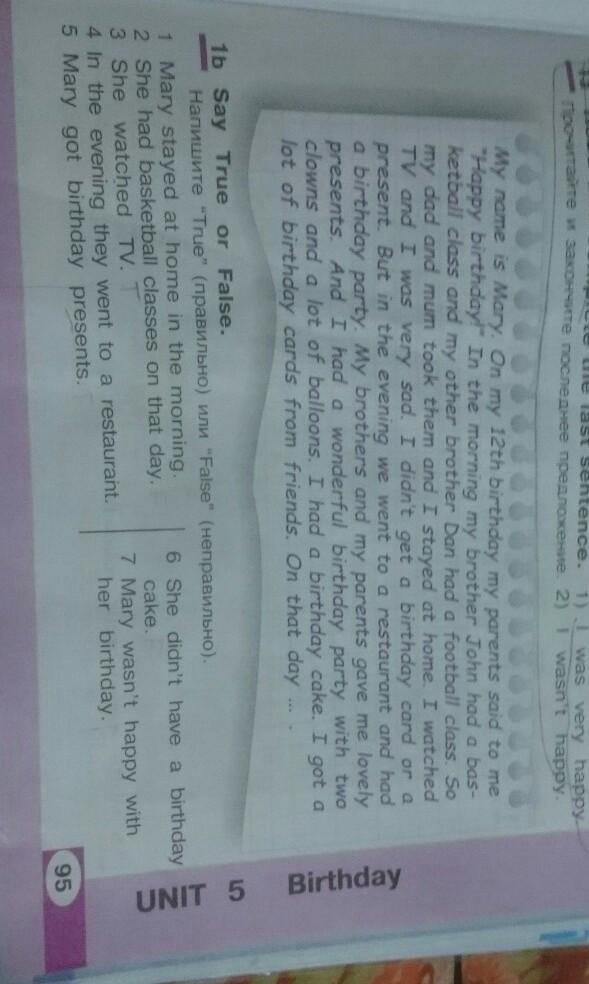 the last sentence. 1) I was very happy.
Прочитайте и закончите последнее предложение. 2) I wasn't happy.
My name is Mary. On my 12th birthday my parents said to me
"Happy birthday!" In the morning my brother John had a bas-
ketball class and my other brother Dan had a football class. So
my dad and mum took them and I stayed at home. I watched
TV and I was very sad. I didn't get a birthday card or a
present. But in the evening we went to a restaurant and had
a birthday party. My brothers and my parents gave me lovely
presents. And I had a wonderful birthday party with two
clowns and a lot of balloons. I had a birthday cake. I got a
lot of birthday cards from friends. On that day ... .
1b Say True or False.
Напишите "True" (правильно) или "False" (неправильно).
1 Mary stayed at home in the morning.
2 She had basketball classes on that day.
3 She watched TV.
4 In the evening they went to a restaurant.
5 Mary got birthday presents.
6 She didn't have a birthday
cake.
7 Mary wasn't happy with
her birthday.
UNIT 5 Birthday
95